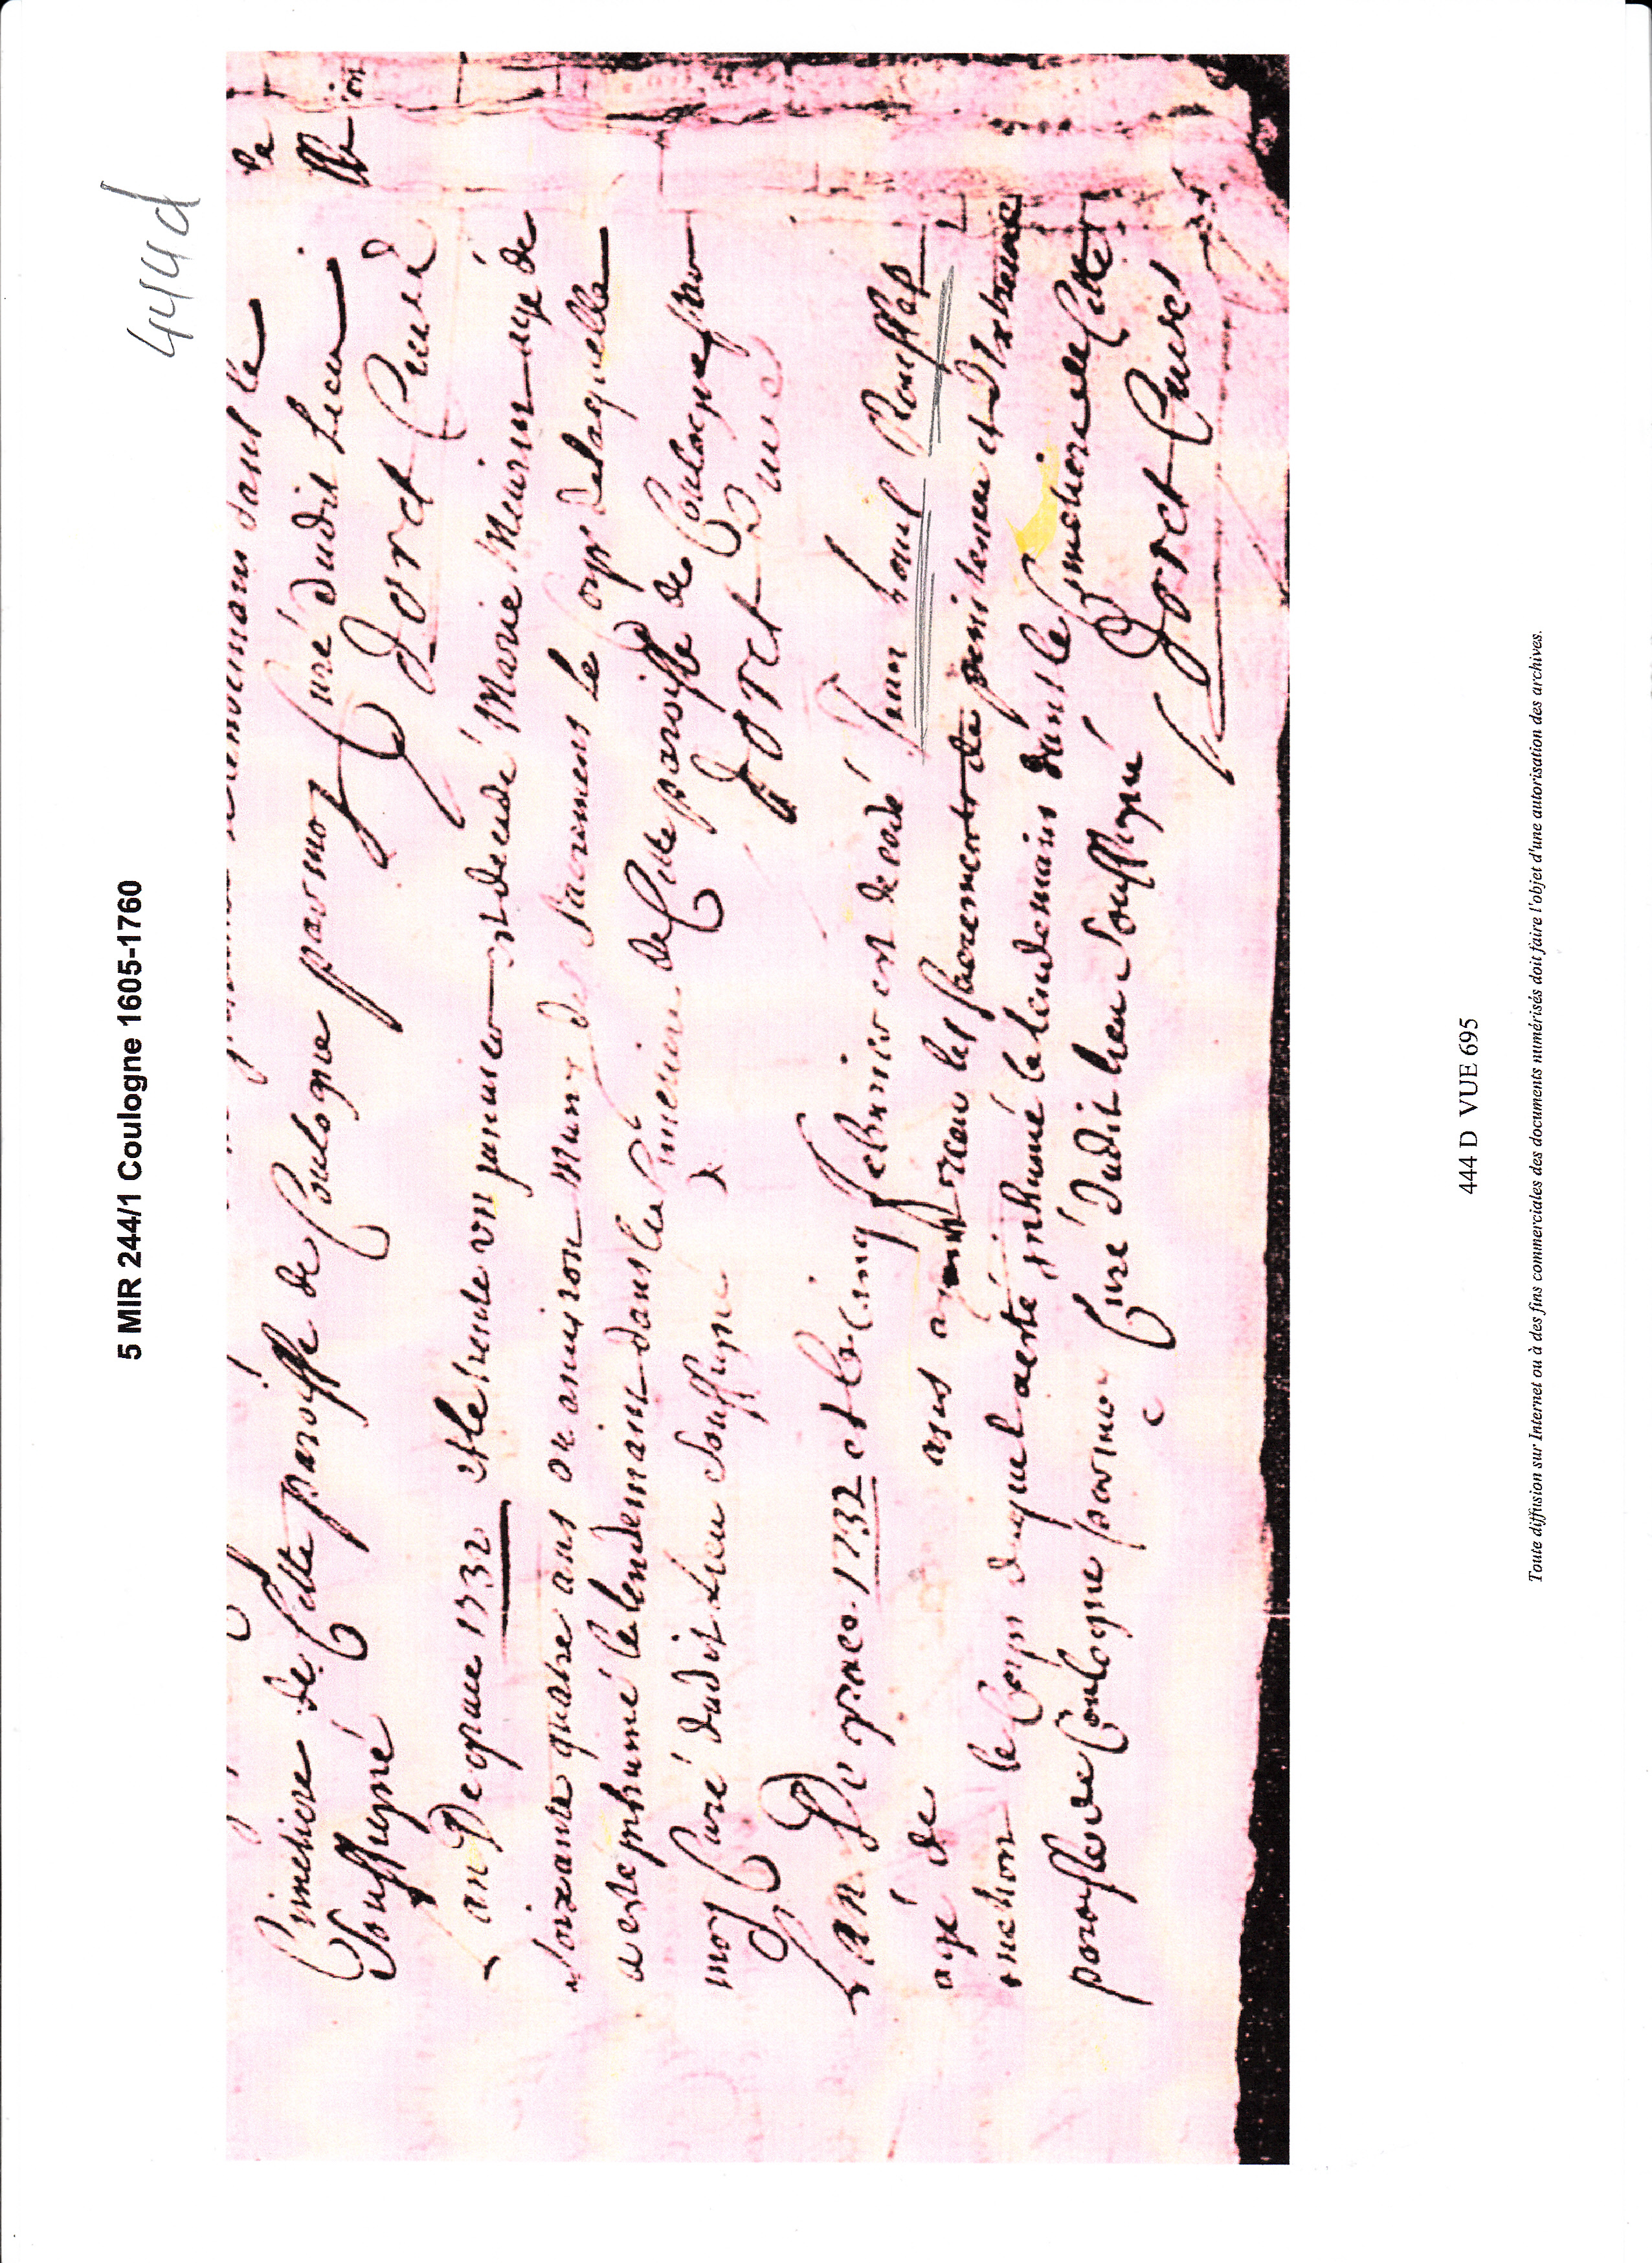 444d
5 MIR 244/1 Coulogne 1605-1760
lendemain dans le
Cimetiere de Cette paroisse de Coulogne par moy Curé dudit Lieu
Soussigné Doret Curé
Lan De grace 1732 et le trente un janvier est decedé Marie Meurin agé de
soixante quatre ans ou anviron Muny des sacremens le Corps de laquelle
a esté inhumé le lendemain dans le Cimetiere de Cette paroisse de Coulogne par
moy Curé dudit Lieu Soussigné Doret Curé
Lan De grace 1732 et le Cinq febvrier est decedé Jean Louis
agé de ans ayant receu les sacrements de penitence et d'Extreme
onction le Corps duquel a esté inhumé le lendemain dans le Cimetiere de Cette
paroisse de Coulogne par moy Curé dudit lieu soussigné Doret Curé
444 D VUE 695
Toute diffusion sur Internet ou à des fins commerciales des documents numérisés doit faire l'objet d'une autorisation des archives.